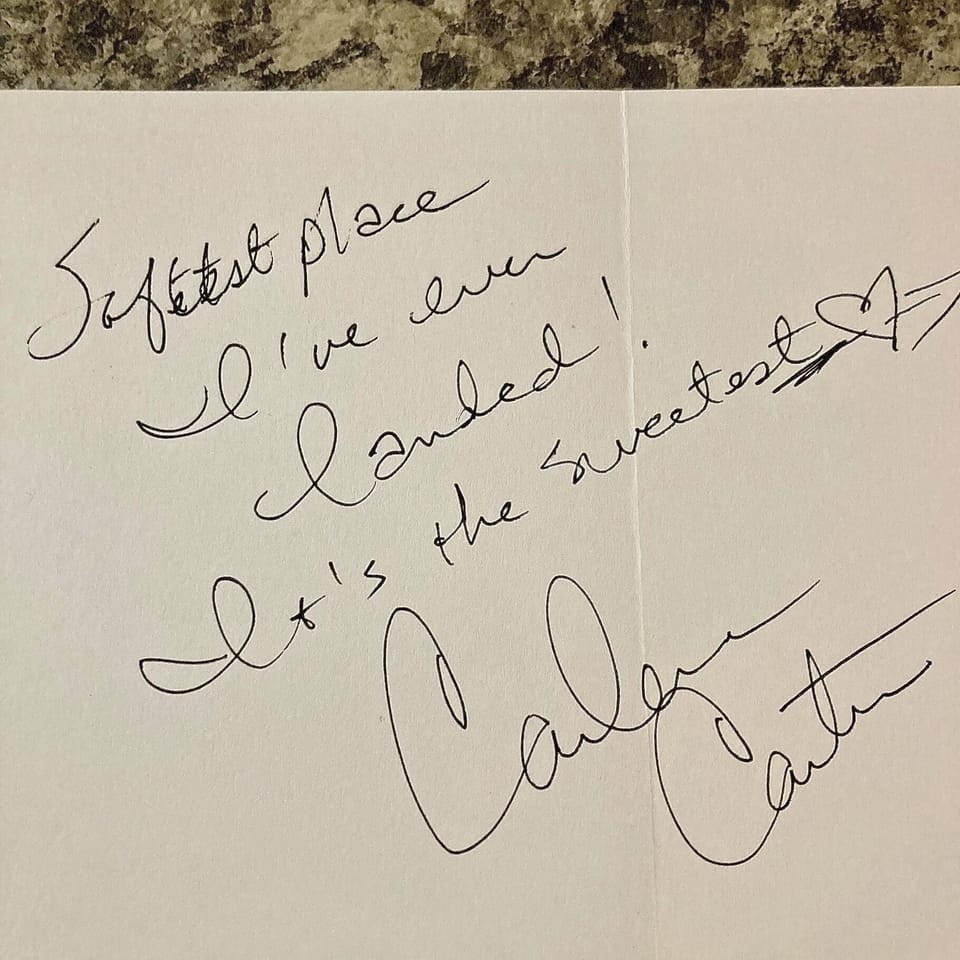 Softest place
I've ever
landed!
It's the sweetest
Carlene
Carter